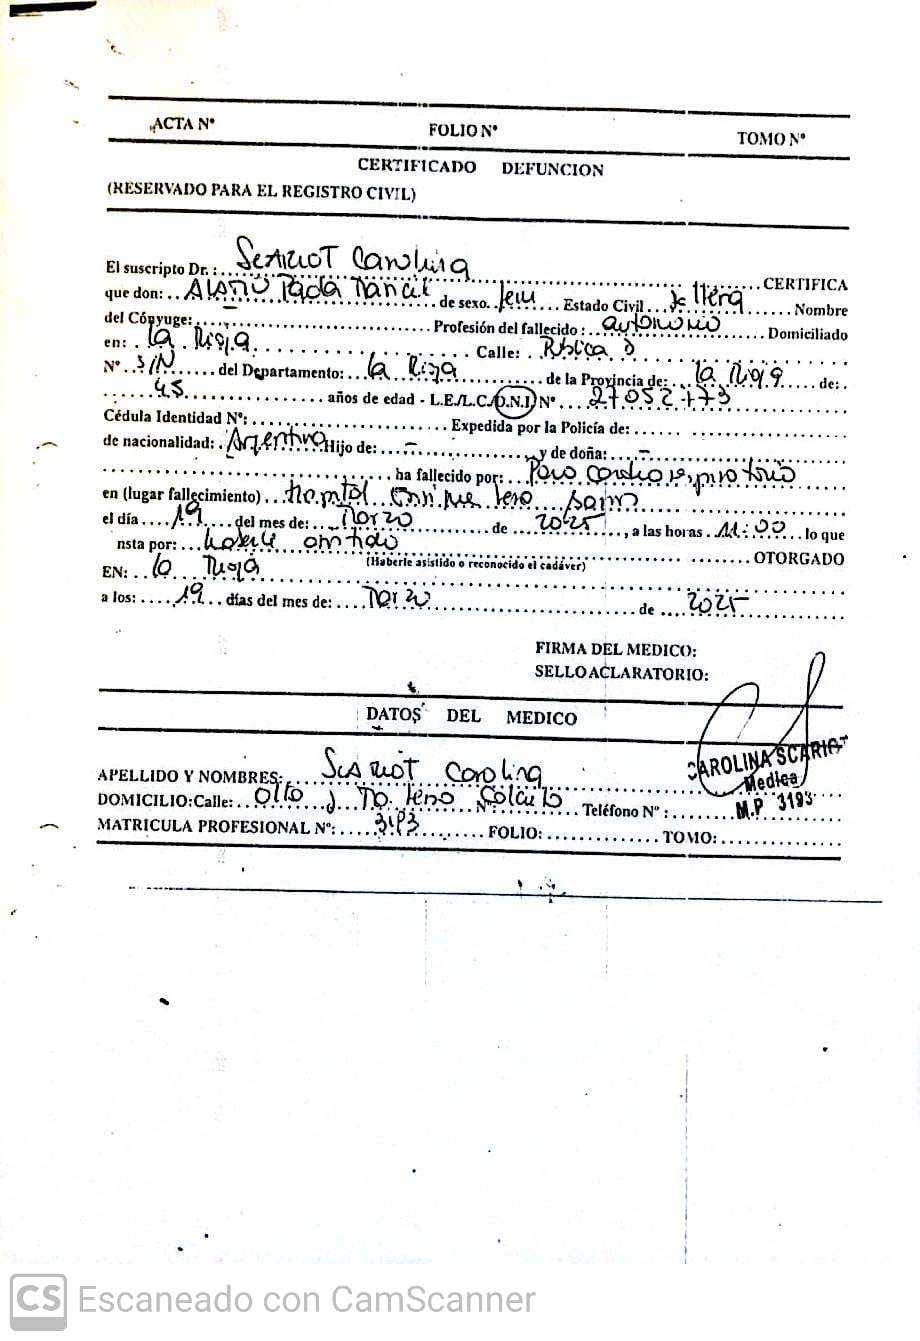 ACTA Nº FOLIO Nº TOMO Nº
CERTIFICADO DEFUNCION
(RESERVADO PARA EL REGISTRO CIVIL)
El suscripto Dr.: Scariot Carolina CERTIFICA
que don: Paola de sexo. fem Estado Civil Soltera Nombre
del Cónyuge: – Profesión del fallecido: autonomo Domiciliado
en: La Rioja Calle: Publica
Nº S/N del Departamento: La Rioja de la Provincia de: La Rioja de:
45 años de edad - L.E./L.C./D.N.I) Nº
Cédula Identidad Nº: Expedida por la Policía de:
de nacionalidad: Argentina Hijo de: – y de doña: –
ha fallecido por: Paro cardiorespiratorio
en (lugar fallecimiento) Hospital Enrique Vera Barros
el día 19 del mes de: Marzo de 2025, a las horas 11:00 lo que
nsta por: haberle asistido OTORGADO
(Haberle asistido o reconocido el cadáver)
EN: La Rioja
a los: 19 días del mes de: Marzo de 2025
FIRMA DEL MEDICO:
SELLO ACLARATORIO:
DATOS DEL MEDICO
CAROLINA SCARIOT
Medica
M.P 3193
APELLIDO Y NOMBRES: Scariot Carolina
DOMICILIO: Calle: Nº: Teléfono Nº:
MATRICULA PROFESIONAL Nº: 3193 FOLIO: TOMO:
CS Escaneado con CamScanner